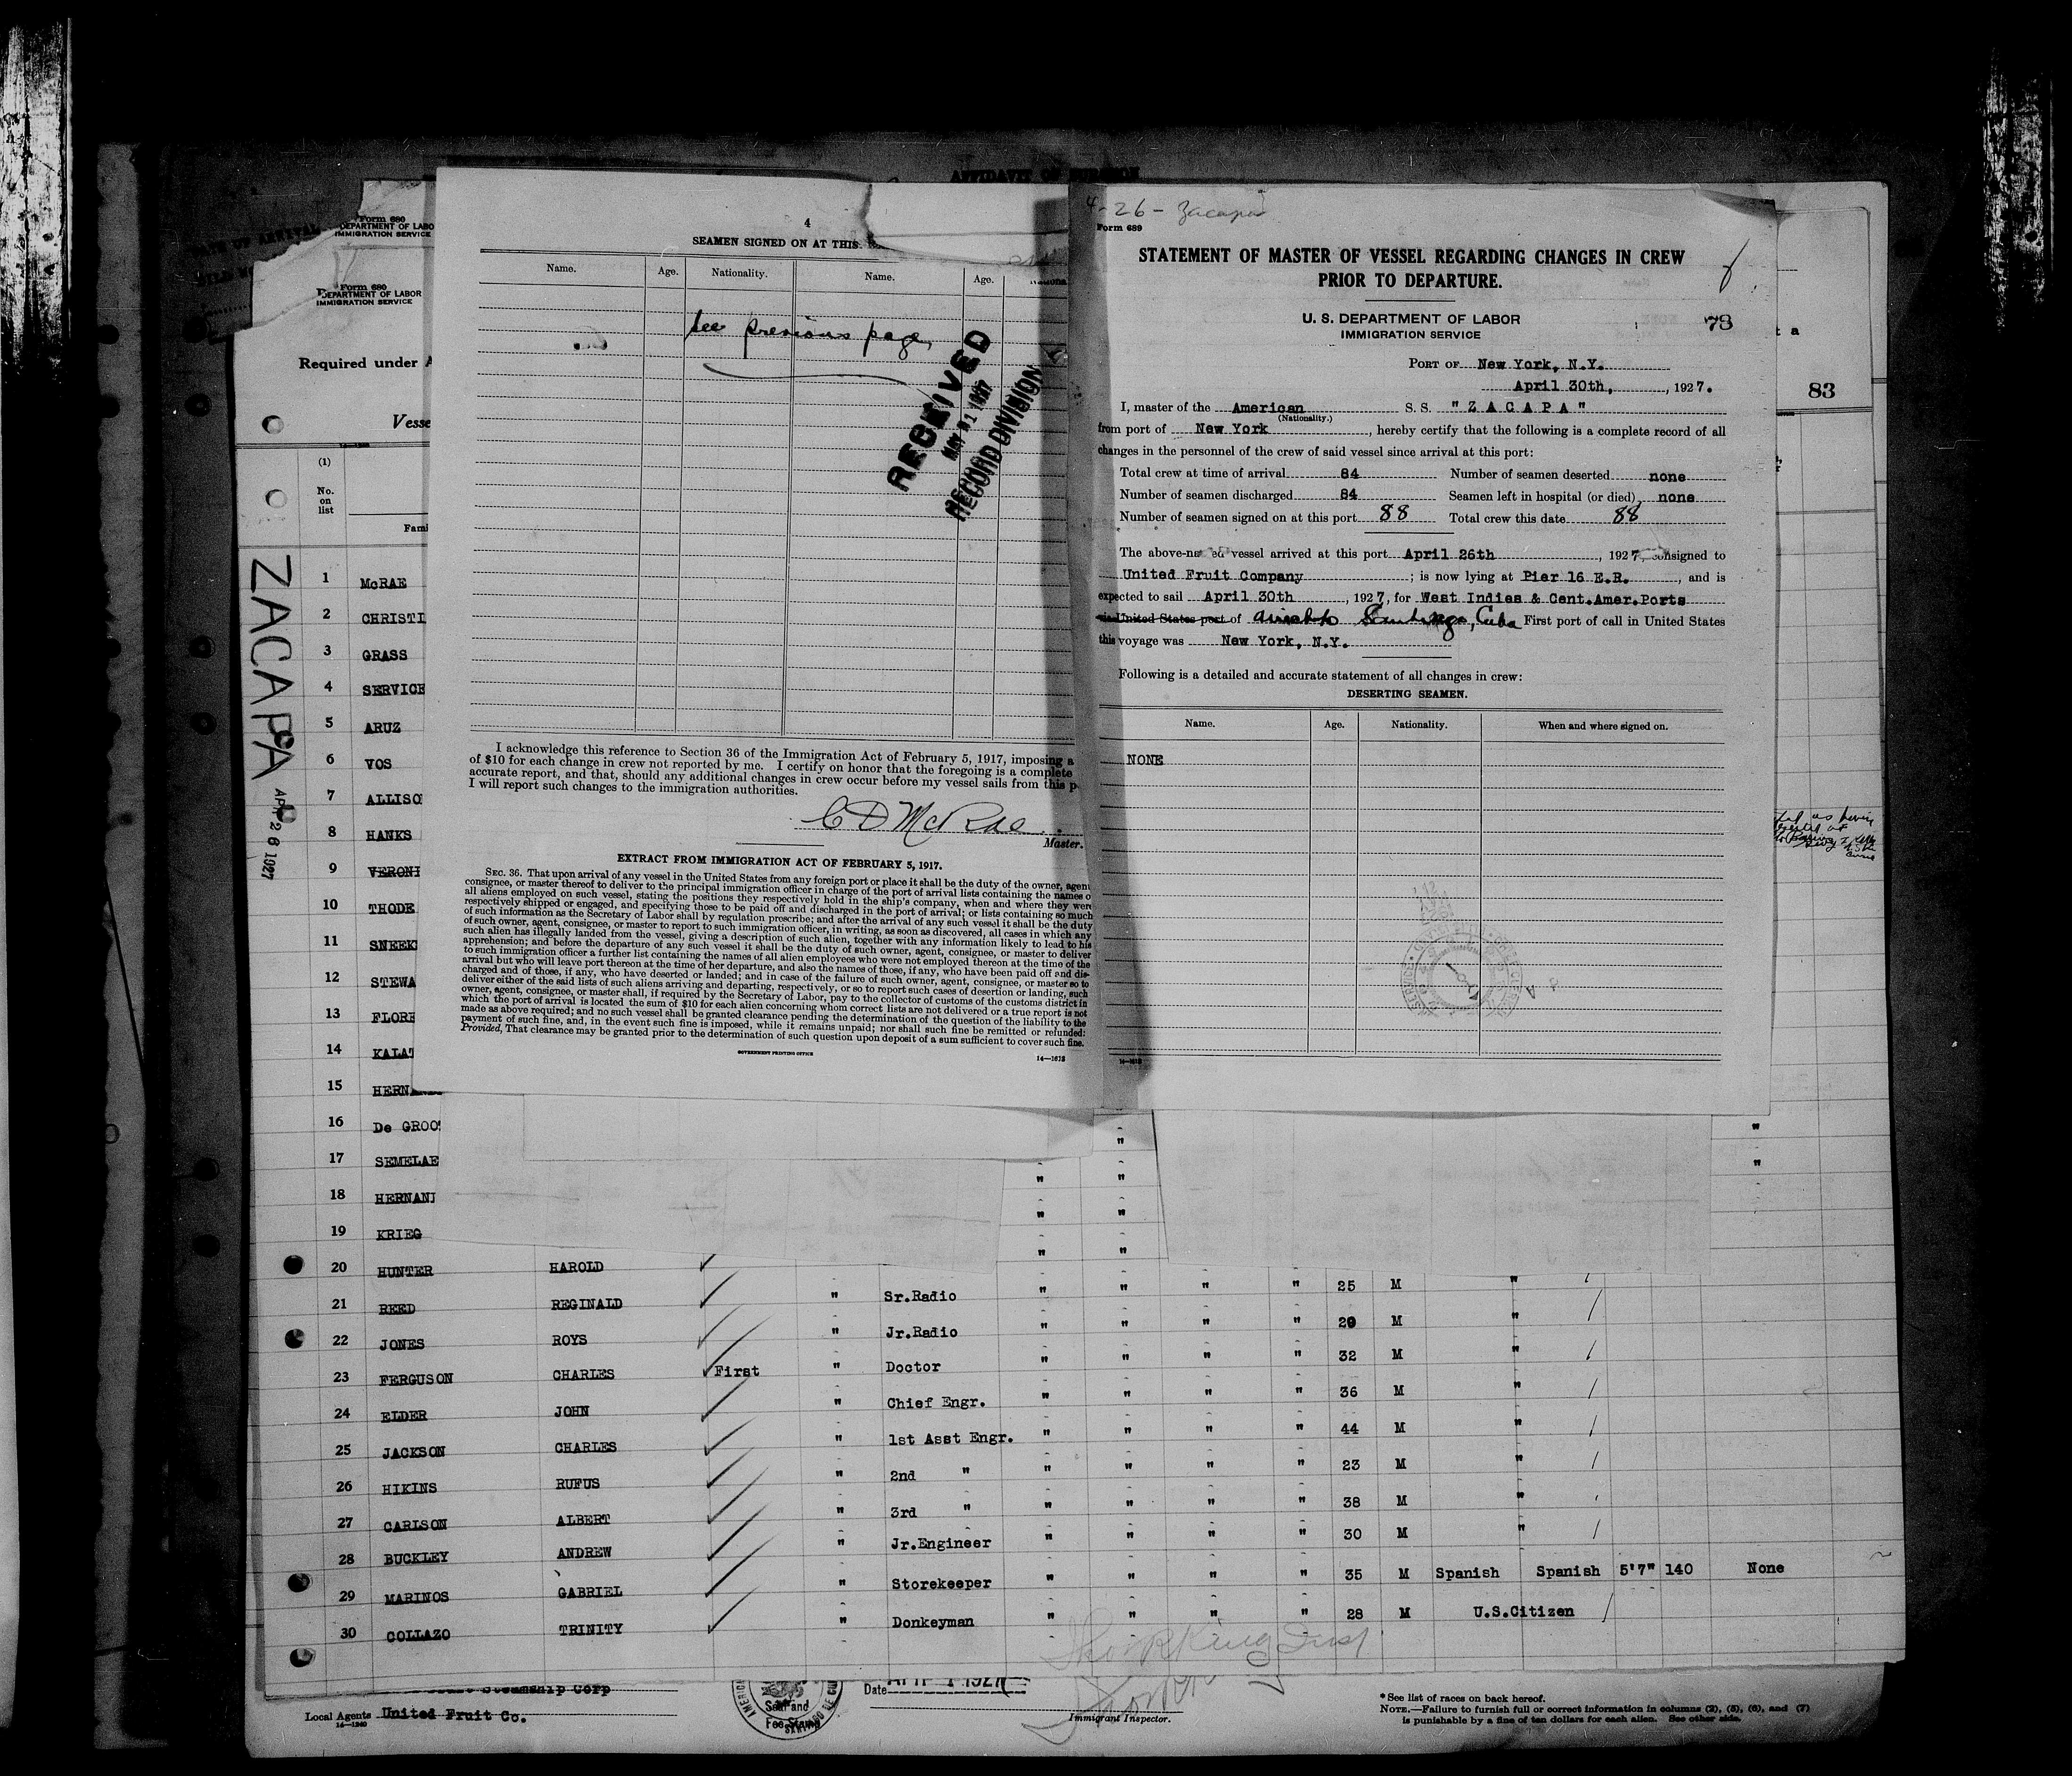 AFFIDAVIT OF SURGEON
Form 680
DEPARTMENT OF LABO
IMMIGRATION SERVICE
Form 680
DEPARTMENT OF LABOR
IMMIGRATION SERVICE
Required under A
Vesse
(1)
No.
on
list
Fami
ZACAPA
APR 26 1927
1 McRAE
2 CHRISTI
3 GRASS
4 SERVICE
5 ARUZ
6 VOS
7 ALLISO
8 HANKS
9 VERONI
10 THODE
11 SNEEK
12 STEWA
13 FLORE
14 KALAT
15 HERNA
16 De GROO
17 SEMELAE
18 HERNANI
19 KRIEG
20 HUNTER HAROLD
21 REED REGINALD " Sr.Radio " " " " 25 M "
22 JONES ROYS " Jr.Radio " " " " 20 M "
23 FERGUSON CHARLES First " Doctor " " " " 32 M "
24 ELDER JOHN " Chief Engr. " " " " 36 M "
25 JACKSON CHARLES " 1st Asst Engr. " " " " 44 M "
26 HIKINS RUFUS " 2nd " " " " " 23 M "
27 CARLSON ALBERT " 3rd " " " " " 38 M "
28 BUCKLEY ANDREW " Jr.Engineer " " " " 30 M "
29 MARINOS GABRIEL " Storekeeper " " " " 35 M Spanish Spanish 5'7" 140 None
30 COLLAZO TRINITY " Donkeyman " " " " 28 M U.S.Citizen
Steamship Corp
Local Agents United Fruit Co.
14—1240
Seal and
Fee Stamp
Date APR 1 1927
Immigrant Inspector.
*See list of races on back hereof.
NOTE.—Failure to furnish full or correct information in columns (2), (5), (6), and (7)
is punishable by a fine of ten dollars for each alien. See other side.
4
SEAMEN SIGNED ON AT THIS
Name. Age. Nationality. Name. Age.
See previous page
RECEIVED
MAY 21 1927
RECORD DIVISION
I acknowledge this reference to Section 36 of the Immigration Act of February 5, 1917, imposing a
of $10 for each change in crew not reported by me. I certify on honor that the foregoing is a complete
accurate report, and that, should any additional changes in crew occur before my vessel sails from this p
I will report such changes to the immigration authorities.
C D McRae
Master.
EXTRACT FROM IMMIGRATION ACT OF FEBRUARY 5, 1917.
SEC. 36. That upon arrival of any vessel in the United States from any foreign port or place it shall be the duty of the owner, agent
consignee, or master thereof to deliver to the principal immigration officer in charge of the port of arrival lists containing the names o
all aliens employed on such vessel, stating the positions they respectively hold in the ship's company, when and where they were
respectively shipped or engaged, and specifying those to be paid off and discharged in the port of arrival; or lists containing so much
of such information as the Secretary of Labor shall by regulation prescribe; and after the arrival of any such vessel it shall be the duty
of such owner, agent, consignee, or master to report to such immigration officer, in writing, as soon as discovered, all cases in which any
such alien has illegally landed from the vessel, giving a description of such alien, together with any information likely to lead to his
apprehension; and before the departure of any such vessel it shall be the duty of such owner, agent, consignee, or master to deliver
to such immigration officer a further list containing the names of all alien employees who were not employed thereon at the time of the
arrival but who will leave port thereon at the time of her departure, and also the names of those, if any, who have been paid off and dis-
charged and of those, if any, who have deserted or landed; and in case of the failure of such owner, agent, consignee, or master so to
deliver either of the said lists of such aliens arriving and departing, respectively, or so to report such cases of desertion or landing, such
owner, agent, consignee, or master shall, if required by the Secretary of Labor, pay to the collector of customs of the customs district in
which the port of arrival is located the sum of $10 for each alien concerning whom correct lists are not delivered or a true report is not
made as above required; and no such vessel shall be granted clearance pending the determination of the question of the liability to the
payment of such fine, and, in the event such fine is imposed, while it remains unpaid; nor shall such fine be remitted or refunded:
Provided, That clearance may be granted prior to the determination of such question upon deposit of a sum sufficient to cover such fine.
GOVERNMENT PRINTING OFFICE 14—1613
4-26- Zacapa
Form 689
STATEMENT OF MASTER OF VESSEL REGARDING CHANGES IN CREW
PRIOR TO DEPARTURE.
U. S. DEPARTMENT OF LABOR
IMMIGRATION SERVICE
73
83
PORT OF New York, N.Y.
April 30th, , 1927.
I, master of the American S. S. "ZACAPA"
(Nationality.)
from port of New York , hereby certify that the following is a complete record of all
changes in the personnel of the crew of said vessel since arrival at this port:
Total crew at time of arrival 84 Number of seamen deserted none
Number of seamen discharged 84 Seamen left in hospital (or died) none
Number of seamen signed on at this port 88 Total crew this date 88
The above-named vessel arrived at this port April 26th , 1927, consigned to
United Fruit Company ; is now lying at Pier 16 E.R. , and is
expected to sail April 30th , 1927, for West Indies & Cent.Amer.Ports
via United States port of direct to Santiago, Cuba First port of call in United States
this voyage was New York, N.Y.
Following is a detailed and accurate statement of all changes in crew:
DESERTING SEAMEN.
Name. Age. Nationality. When and where signed on.
NONE
14—1613